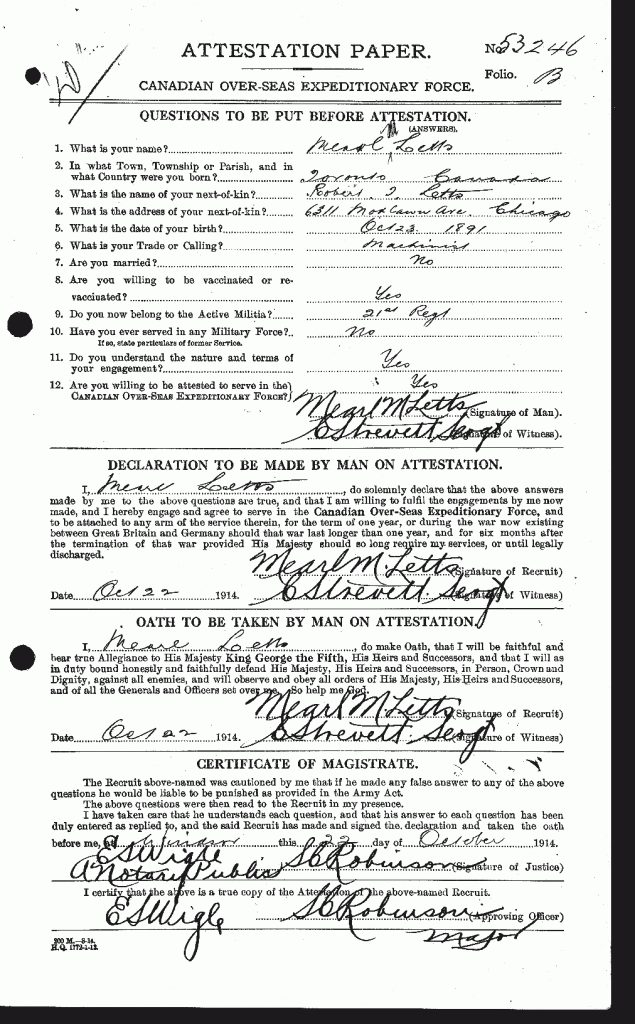 ATTESTATION PAPER.
No. 53246
Folio. B
CANADIAN OVER-SEAS EXPEDITIONARY FORCE.
QUESTIONS TO BE PUT BEFORE ATTESTATION.
(ANSWERS).
1. What is your name? Mearl M Letts
2. In what Town, Township or Parish, and in
what Country were you born? Toronto Canada
3. What is the name of your next-of-kin? Robert J. Letts
4. What is the address of your next-of-kin? 6311 Ave. Chicago
5. What is the date of your birth? Oct 23. 1891
6. What is your Trade or Calling? Machinist
7. Are you married? No
8. Are you willing to be vaccinated or re-
vaccinated? Yes
9. Do you now belong to the Active Militia? 21st Regt
10. Have you ever served in any Military Force? No
If so, state particulars of former Service.
11. Do you understand the nature and terms of
your engagement? Yes
12. Are you willing to be attested to serve in the
CANADIAN OVER-SEAS EXPEDITIONARY FORCE? Yes
Mearl M Letts (Signature of Man).
C Strevett Sergt (Signature of Witness).
DECLARATION TO BE MADE BY MAN ON ATTESTATION.
I, Mearl Letts, do solemnly declare that the above answers
made by me to the above questions are true, and that I am willing to fulfil the engagements by me now
made, and I hereby engage and agree to serve in the Canadian Over-Seas Expeditionary Force, and
to be attached to any arm of the service therein, for the term of one year, or during the war now existing
between Great Britain and Germany should that war last longer than one year, and for six months after
the termination of that war provided His Majesty should so long require my services, or until legally
discharged.
Mearl M. Letts (Signature of Recruit)
Date Oct 22 1914. C Strevett. Sergt (Signature of Witness)
OATH TO BE TAKEN BY MAN ON ATTESTATION.
I, Mearl Letts, do make Oath, that I will be faithful and
bear true Allegiance to His Majesty King George the Fifth, His Heirs and Successors, and that I will as
in duty bound honestly and faithfully defend His Majesty, His Heirs and Successors, in Person, Crown and
Dignity, against all enemies, and will observe and obey all orders of His Majesty, His Heirs and Successors,
and of all the Generals and Officers set over me. So help me God.
Mearl M Letts (Signature of Recruit)
Date Oct 22 1914. C Strevett. Sergt (Signature of Witness)
CERTIFICATE OF MAGISTRATE.
The Recruit above-named was cautioned by me that if he made any false answer to any of the above
questions he would be liable to be punished as provided in the Army Act.
The above questions were then read to the Recruit in my presence.
I have taken care that he understands each question, and that his answer to each question has been
duly entered as replied to, and the said Recruit has made and signed the declaration and taken the oath
before me, at Windsor this 22 day of October 1914.
E S Wigle S C Robinson (Signature of Justice)
A Notary Public
I certify that the above is a true copy of the Attestation of the above-named Recruit.
E S Wigle S C Robinson (Approving Officer)
Major
200 M.—8-14.
H.Q. 1772-1-13.